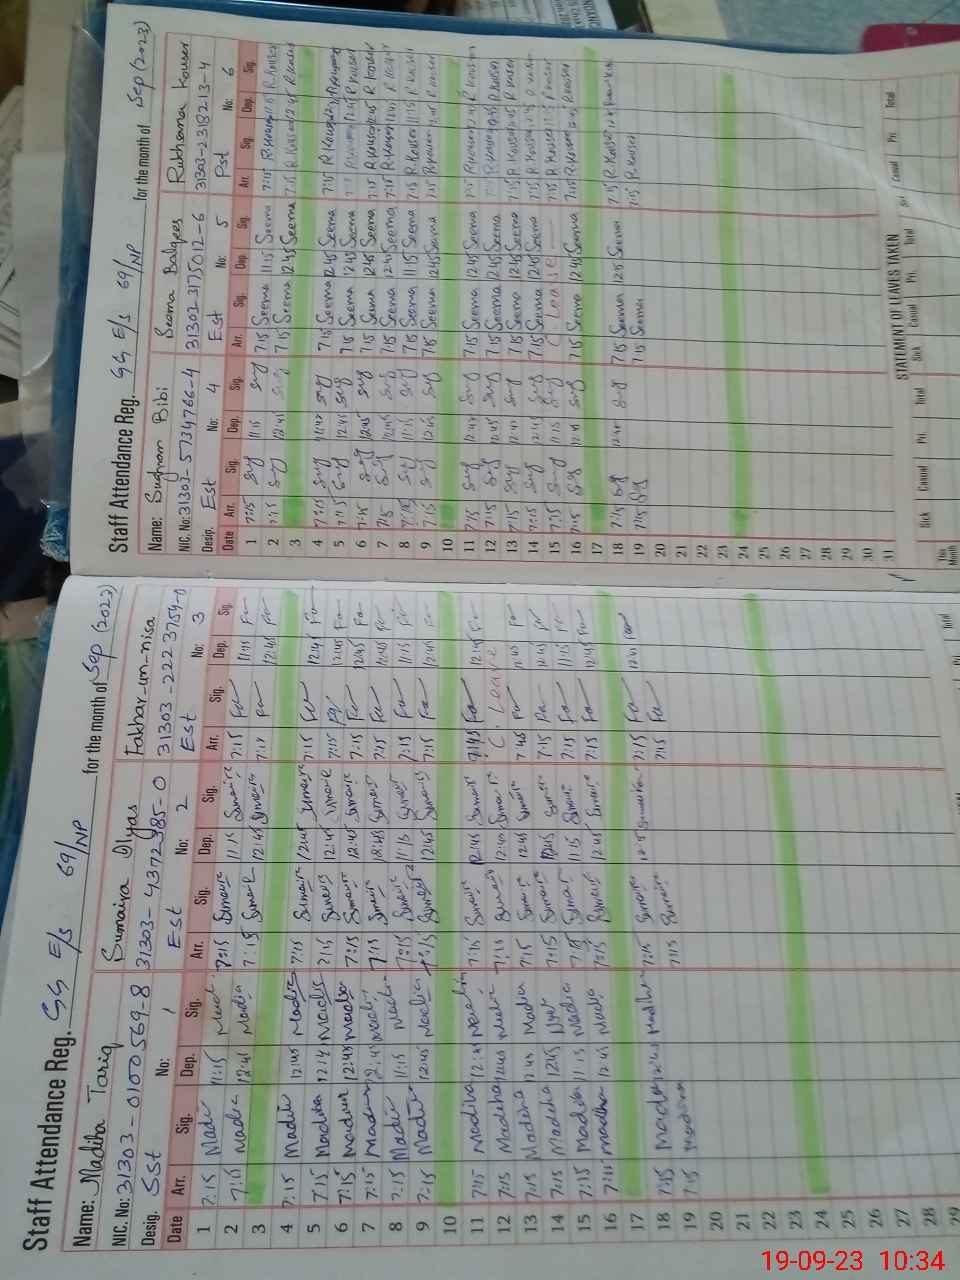 Staff Attendance Reg. GG E/S 69/NP for the month of Sep (2023)
Name: Madiha Tariq Sumaira Ilyas Fakhar-un-nisa
NIC. No: 31303-0100569-8 31303-4372985-0 31303-222 3759-0
Desig. SSt No: 1 Est No: 2 Est No: 3
Date Arr. Sig. Dep. Sig. Arr. Sig. Dep. Sig. Arr. Sig. Dep. Sig.
1 7:15 11:15 7:15 Sumaira 11:15 Sumaira 7:15 Fa 11:15 Fa
2 7:15 Madia 12:45 Madia 7:15 Sumaira 12:45 Sumaira 7:15 Fa 12:45 Fa
3
4 7:15 12:45 Madia 7:15 Sumaira 12:45 Sumaira 7:15 Fa 12:45 Fa
5 7:15 Madiha 7:15 Sumaira 12:45 7:15 12:45 Fa
6 7:15 12:45 Madia 7:15 Sumaira 12:45 Sumaira 7:15 Fa 12:45 Fa
7 7:15 12:45 7:15 Sumaira 12:45 Sumaira 7:15 Fa 12:45 Fa
8 7:15 11:15 Madia 7:15 Sumaira 11:15 Sumaira 7:15 Fa 11:15 Fa
9 7:15 12:45 Madia 7:15 Sumaira 12:45 Sumaira 7:15 Fa 12:45 Fa
10
11 7:15 Madiha 12:45 7:15 Sumaira 12:45 Sumaira Fa 12:45 Fa
12 7:15 Madeha 12:45 7:15 Sumaira 12:45 Sumaira C. Leave
13 7:15 Madiha 12:45 Madiha 7:15 Sumaira 12:45 Sumaira 7:45 Fa 12:45 Fa
14 7:15 Madeha 12:45 7:15 Sumaira 12:45 Sumaira 7:15 Fa 12:45 Fa
15 7:15 Madiha 11:15 Madia 7:15 Sumaira 11:15 Sumaira 7:15 Fa 11:15 Fa
16 7:15 Madiha 12:45 Madia 7:15 Sumaira 12:45 Sumaira 7:15 Fa 12:45 Fa
17
18 7:15 Madiha 12:45 Madiha 7:15 Sumaira 12:45 Sumaira 7:15 Fa 12:45 Fa
19 7:15 Madiha 7:15 Sumaira 7:15 Fa
20
21
22
23
24
25
26
27
28
29
Total
Staff Attendance Reg. GG E/S 69/NP for the month of Sep (2023)
Name: Sughram Bibi Seema Balqees Rukhsana Kouser
NIC. No: 31303-5734766-4 31303-3175012-6 31303-2318213-4
Desig. Est No: 4 Est No: 5 Pst No: 6
Date Arr. Sig. Dep. Sig. Arr. Sig. Dep. Sig. Arr. Sig. Dep. Sig.
1 7:15 Sug 11:15 Sug 7:15 Seema 11:15 Seema 7:15 R.Kouser 11:15 R.Kouser
2 7:15 Sug 12:45 Sug 7:15 Seema 12:45 Seema 7:15 R.Kouser 12:45 R.Kouser
3
4 7:15 Sug 12:45 Sug 7:15 Seema 12:45 Seema 7:15 R.Kouser 12:45 R.Kouser
5 7:15 Sug 12:45 Sug 7:15 Seema 12:45 Seema 7:15 R.Kouser 12:45 R.Kouser
6 7:15 Sug 12:45 Sug 7:15 Seema 12:45 Seema 7:15 R.Kouser 12:45 R.Kouser
7 7:15 Sug 12:45 Sug 7:15 Seema 12:45 Seema 7:15 R.Kouser 12:45 R.Kouser
8 7:15 Sug 11:15 Sug 7:15 Seema 11:15 Seema 7:15 R.Kouser 11:15 R.Kouser
9 7:15 Sug 12:45 Sug 7:15 Seema 12:45 Seema 7:15 R.Kouser 12:45 R.Kouser
10
11 7:15 Sug 12:45 Sug 7:15 Seema 12:45 Seema 7:15 R.Kouser 12:45 R.Kouser
12 7:15 Sug 12:45 Sug 7:15 Seema 12:45 Seema 7:15 R.Kouser 12:45 R.Kouser
13 7:15 Sug 12:45 Sug 7:15 Seema 12:45 Seema 7:15 R.Kouser 12:45 R.Kouser
14 7:15 Sug 12:45 Sug 7:15 Seema 12:45 Seema 7:15 R.Kouser 12:45 R.Kouser
15 7:15 Sug 11:15 Sug C. Leave 7:15 R.Kouser 11:15 R.Kouser
16 7:15 Sug 12:45 Sug 7:15 Seema 12:45 Seema 7:15 R.Kouser 12:45 R.Kouser
17
18 7:15 Sug 12:45 Sug 7:15 Seema 12:45 Seema 7:15 R.Kouser 12:45 R.Kouser
19 7:15 Sug 7:15 Seema 7:15 R.Kouser
20
21
22
23
24
25
26
27
28
29
30
31
STATEMENT OF LEAVES TAKEN
Sick Casual Pri. Total Sick Casual Pri. Total Casual Pri. Total
This Month
19-09-23 10:34